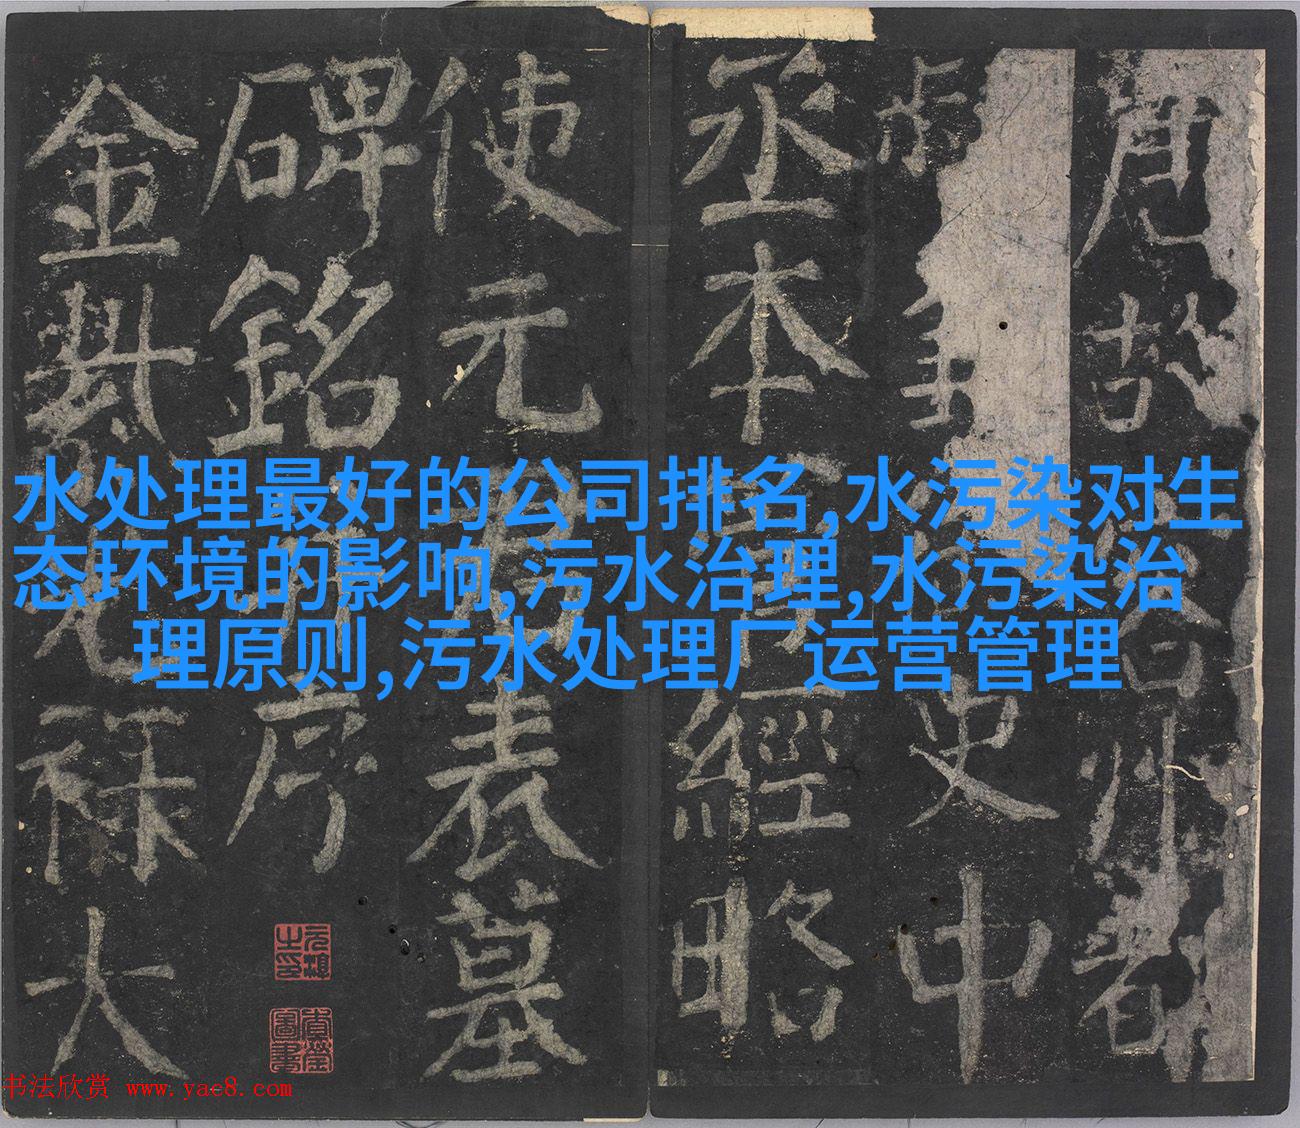 水处理最好的公司排名,水污染对生
态环境的影响,污水治理,水污染治
理原则,污水处理厂运营管理
唐故容州都
史中
丞本經略
使元表墓
碑銘序
金紫光祿大
书法欣赏 www.yac8.com